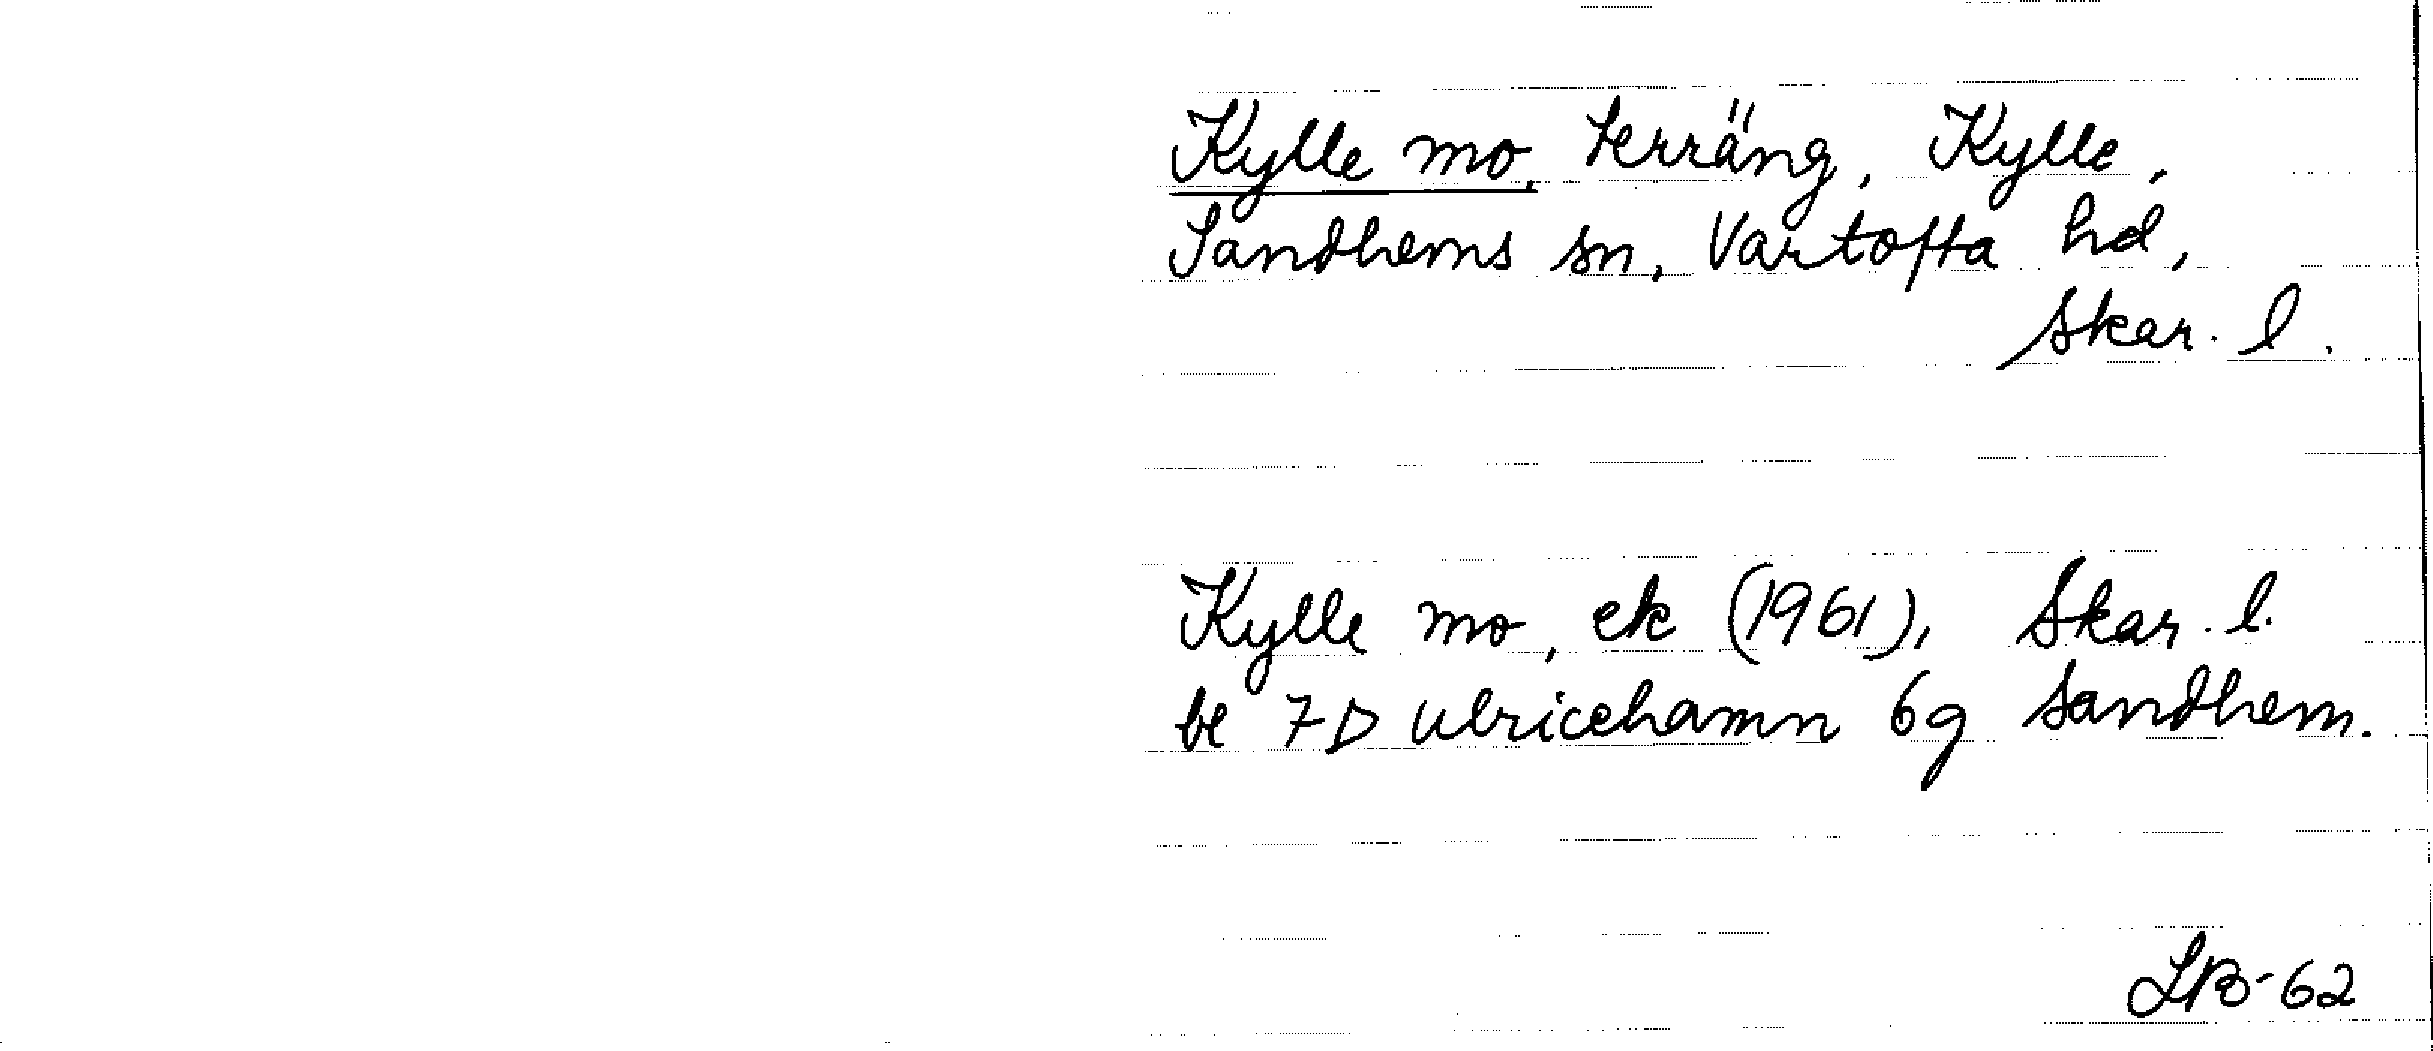 Kylle mo, terräng, Kylle,
Sandhems sn, Vartofta hd,
Skar. l.
Kylle mo, ek (1961), Skar. l.
bl 7D Ulricehamn 6g Sandhem.
LB-62